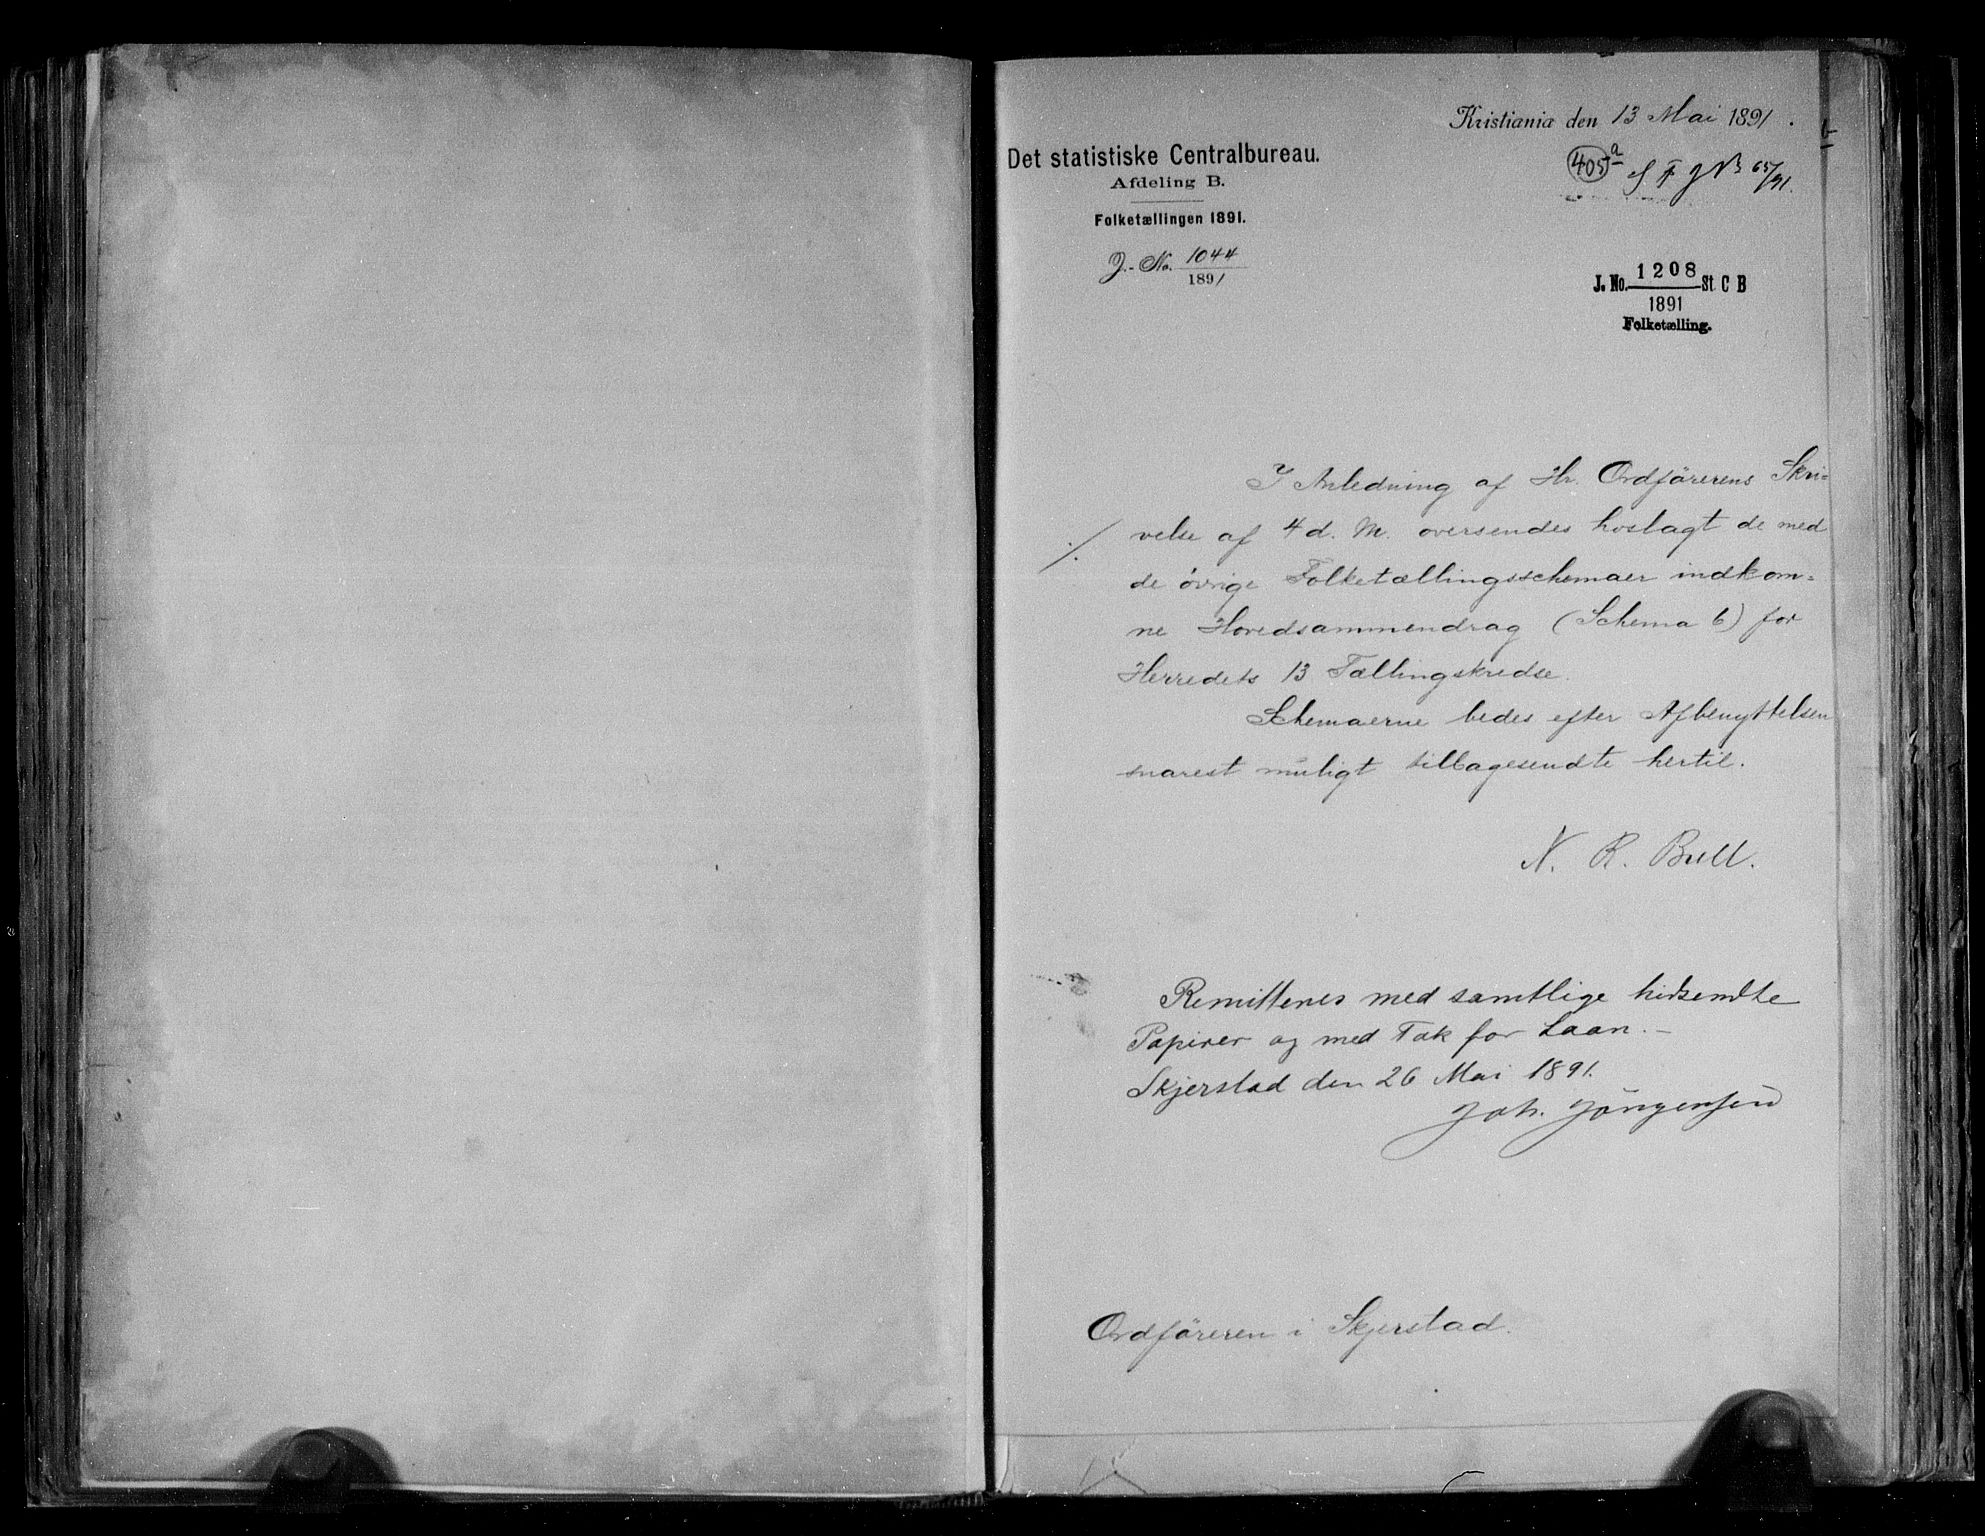 Kristiania den 13 Mai 1891.
Det statistiske Centralbureau.
Afdeling B.
Folketællingen 1891.
J.-No. 1044
1891
405 a
65/91.
J. No. 1208 St. C B
1891
Folketælling.
I Anledning af Hr. Ordførerens Skri=
velse af 4 d. M. oversendes hoslagt de med
de øvrige Folketællingsschemaer indkom=
ne Hovedsammendrag (Schema 6) for
Herredets 13 Tællingskredse.
Schemaerne bedes efter Afbenyttelsen
snarest muligt tilbagesendte hertil.
N. R. Bull.
Remitteres med samtlige hidsendte
Papirer og med Tak for Laan.-
Skjerstad den 26 Mai 1891.
Joh. Jörgensen
Ordföreren i Skjerstad.